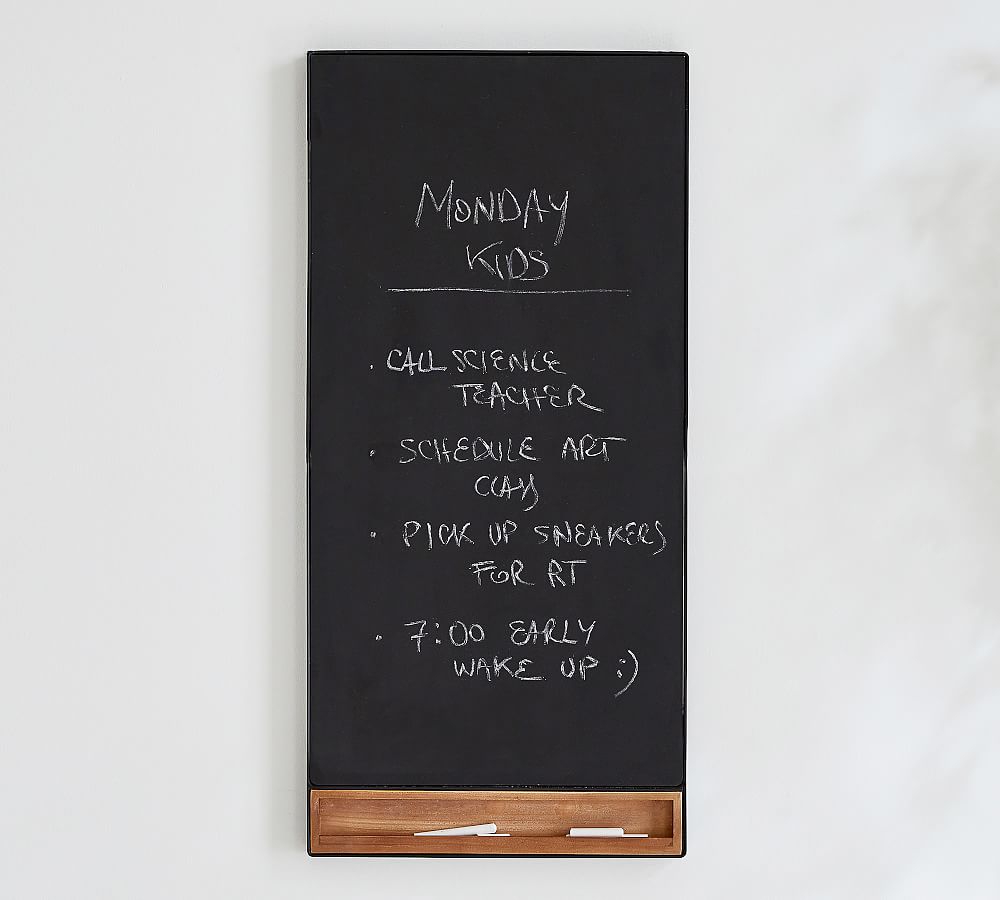 MONDAY
KIDS
· CALL SCIENCE
TEACHER
· SCHEDULE ART
CLAY
· PICK UP SNEAKERS
FOR RT
· 7:00 EARLY
WAKE UP :)